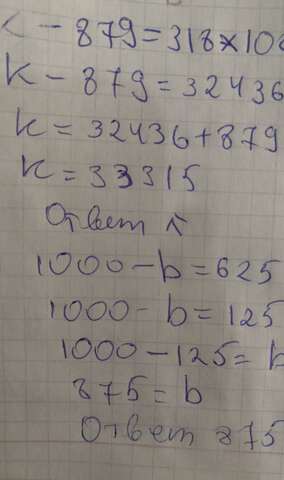 К - 879 = 318 × 10
К - 879 = 32436
К = 32436 + 879
К = 33315
Ответ К
1000 - b = 625
1000 - b = 125
1000 - 125 = b
875 = b
Ответ 875